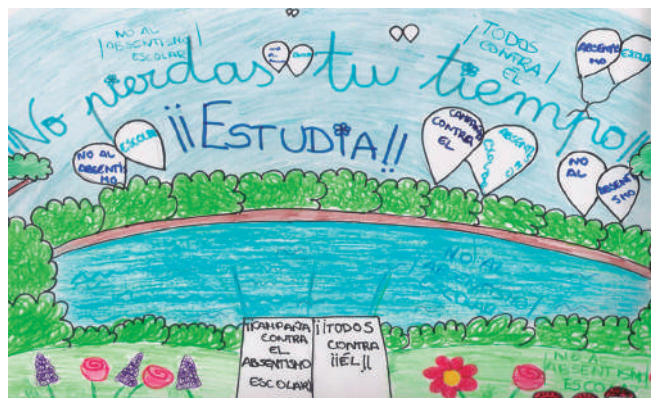 NO AL
¡ABSENTISMO
ESCOLAR!
¡TODOS
CONTRA
EL
ABSENTIS
MO
ESCOLAR
¡¡No pierdas tu tiempo!!
¡¡ESTUDIA!!
NO AL
ABSENTIS
MO
ESCOLAR
CAMPAÑA
CONTRA
EL
ABSENTISMO
NO
AL
ABSENTI
SMO
¡NO AL
¡¡CAMPAÑA
CONTRA
EL
ABSENTISMO
ESCOLAR!
¡¡TODOS
CONTRA
¡¡ÉL!!
¡NO AL
ABSENTISMO
ESCOLA